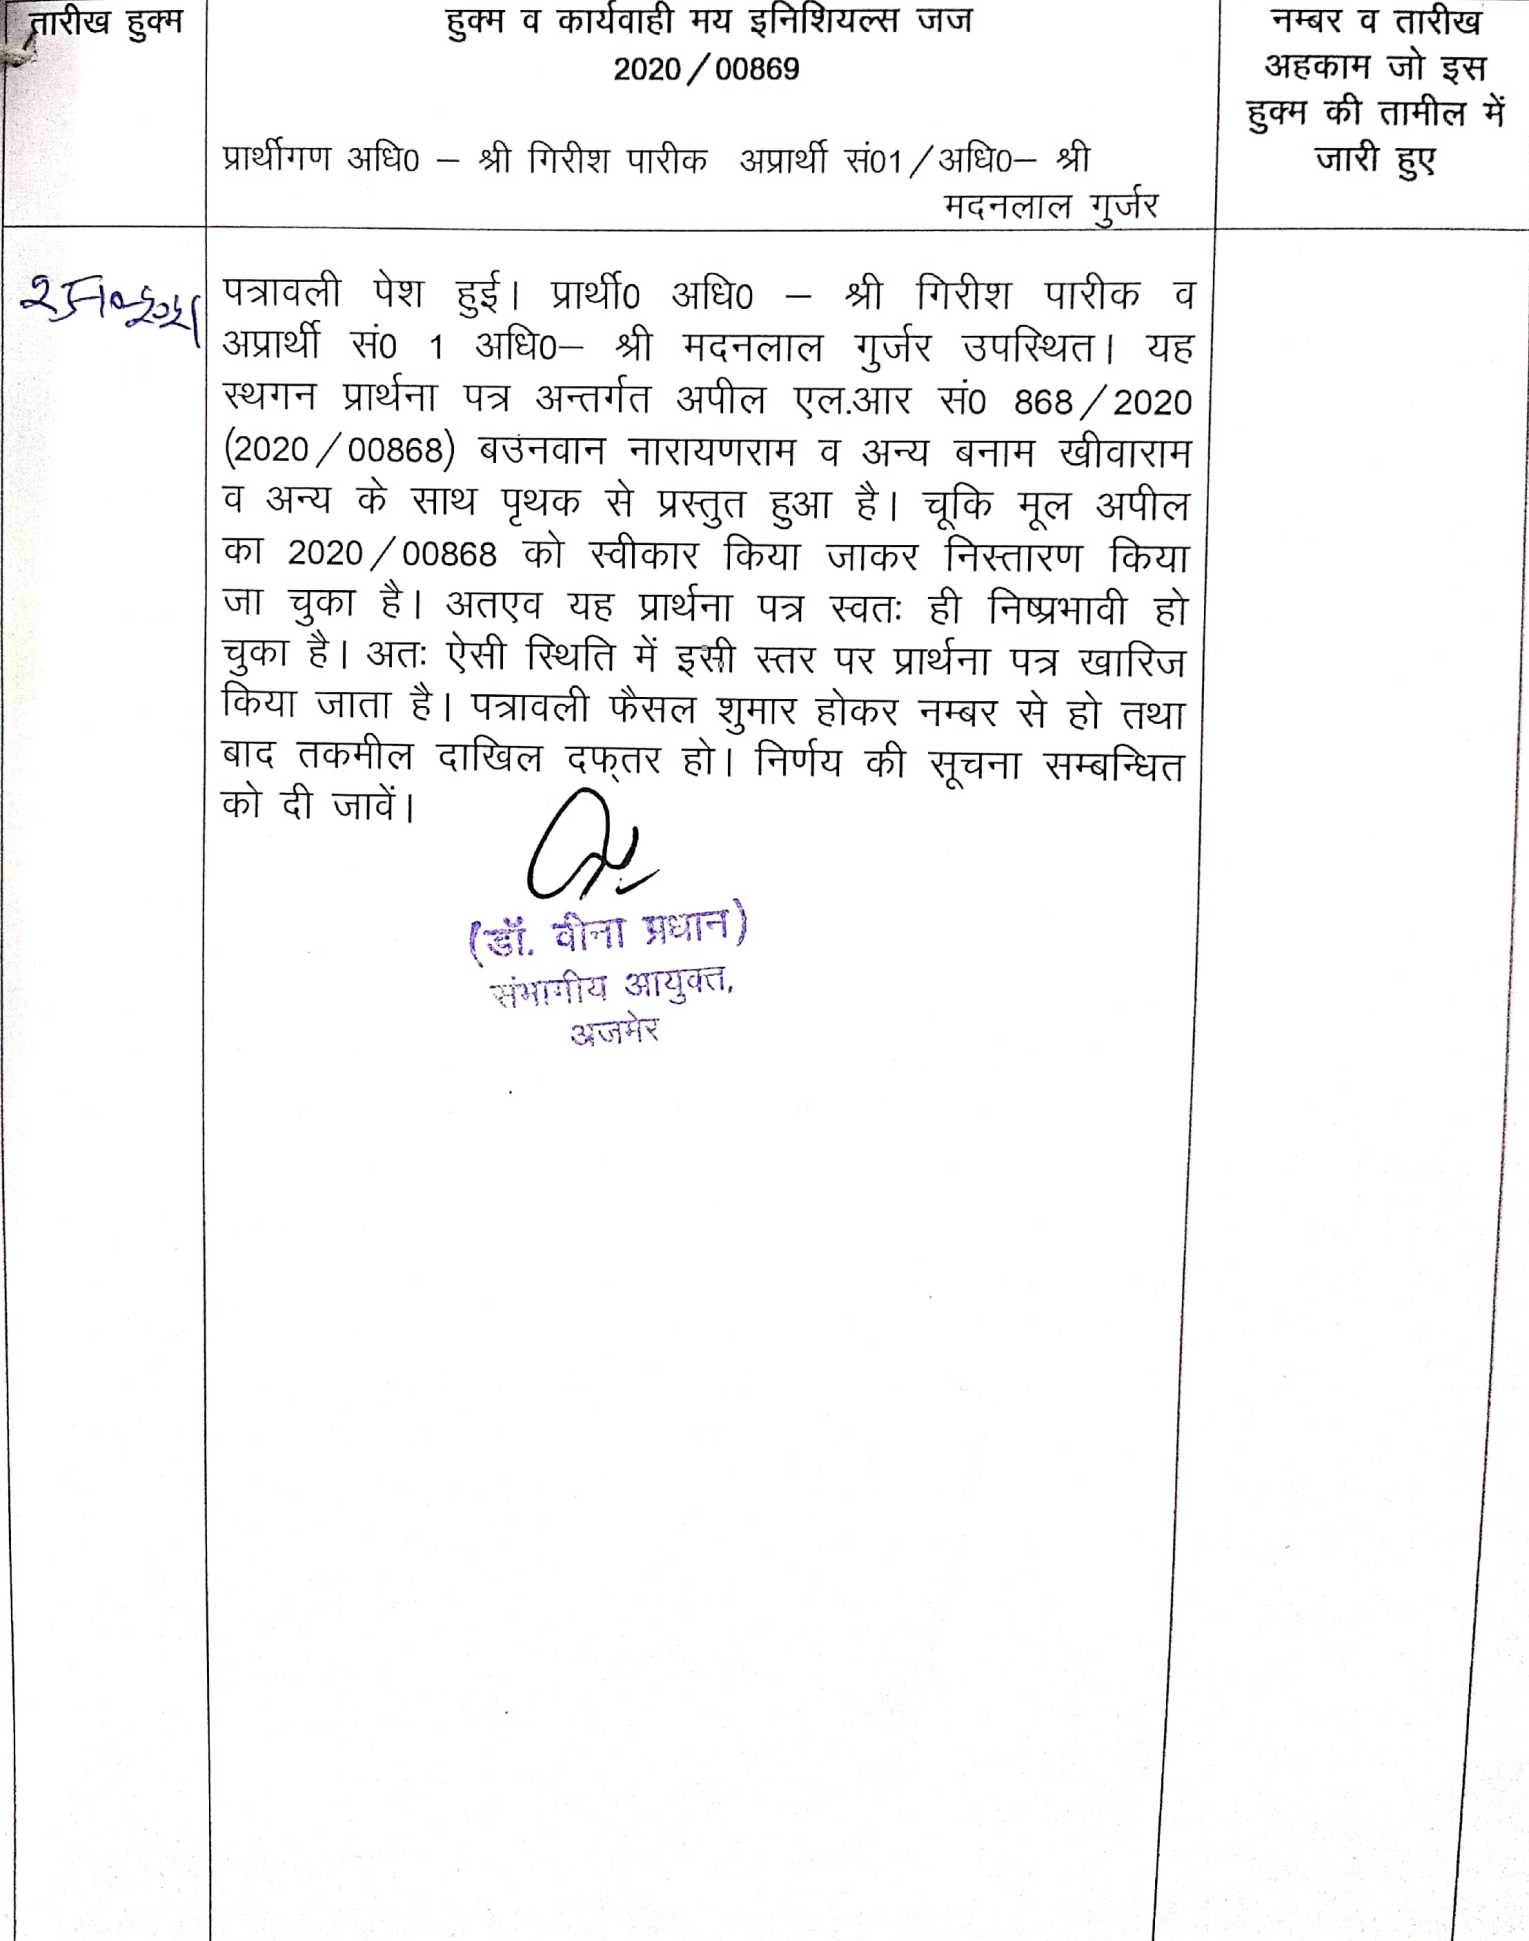 तारीख हुक्म
हुक्म व कार्यवाही मय इनिशियल्स जज
2020/00869
प्रार्थीगण अधि0 – श्री गिरीश पारीक अप्रार्थी सं01/अधि0– श्री
मदनलाल गुर्जर
नम्बर व तारीख
अहकाम जो इस
हुक्म की तामील में
जारी हुए
पत्रावली पेश हुई। प्रार्थी0 अधि0 – श्री गिरीश पारीक व
अप्रार्थी सं0 1 अधि0– श्री मदनलाल गुर्जर उपस्थित। यह
स्थगन प्रार्थना पत्र अन्तर्गत अपील एल.आर सं0 868/2020
(2020/00868) बउनवान नारायणराम व अन्य बनाम खीवाराम
व अन्य के साथ पृथक से प्रस्तुत हुआ है। चूकि मूल अपील
का 2020/00868 को स्वीकार किया जाकर निस्तारण किया
जा चुका है। अतएव यह प्रार्थना पत्र स्वतः ही निष्प्रभावी हो
चुका है। अतः ऐसी स्थिति में इसी स्तर पर प्रार्थना पत्र खारिज
किया जाता है। पत्रावली फैसल शुमार होकर नम्बर से हो तथा
बाद तकमील दाखिल दफ्तर हो। निर्णय की सूचना सम्बन्धित
को दी जावें।
(डॉ. वीना प्रधान)
संभागीय आयुक्त,
अजमेर